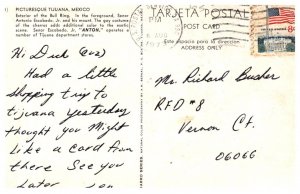 1)
PICTURESQUE TIJUANA, MEXICO
Exterior of the Bull Ring. In the foreground, Senor
Antonio Escobedo, Jr. and his scooter. The gay costumes
of the charros adds additional color to the exotic
scene. Senor Escobedo, Jr. "ANTON," operates a
number of Tijuana department stores.
Hi Dick
Had a little
shopping trip to
tijuana yesterday
thought you Might
Like a card from
there See you
Later
TARJETA POSTAL
POST CARD
Este espacio para la direccion
ADDRESS ONLY
PM
8¢
Mr Richard Busher
RFD #8
Vernon Ct.
06066